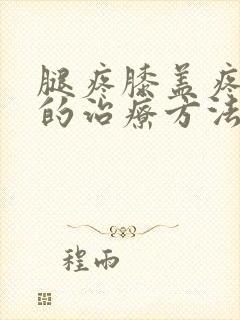 腿疼膝盖疼
的治疗方法
程雨